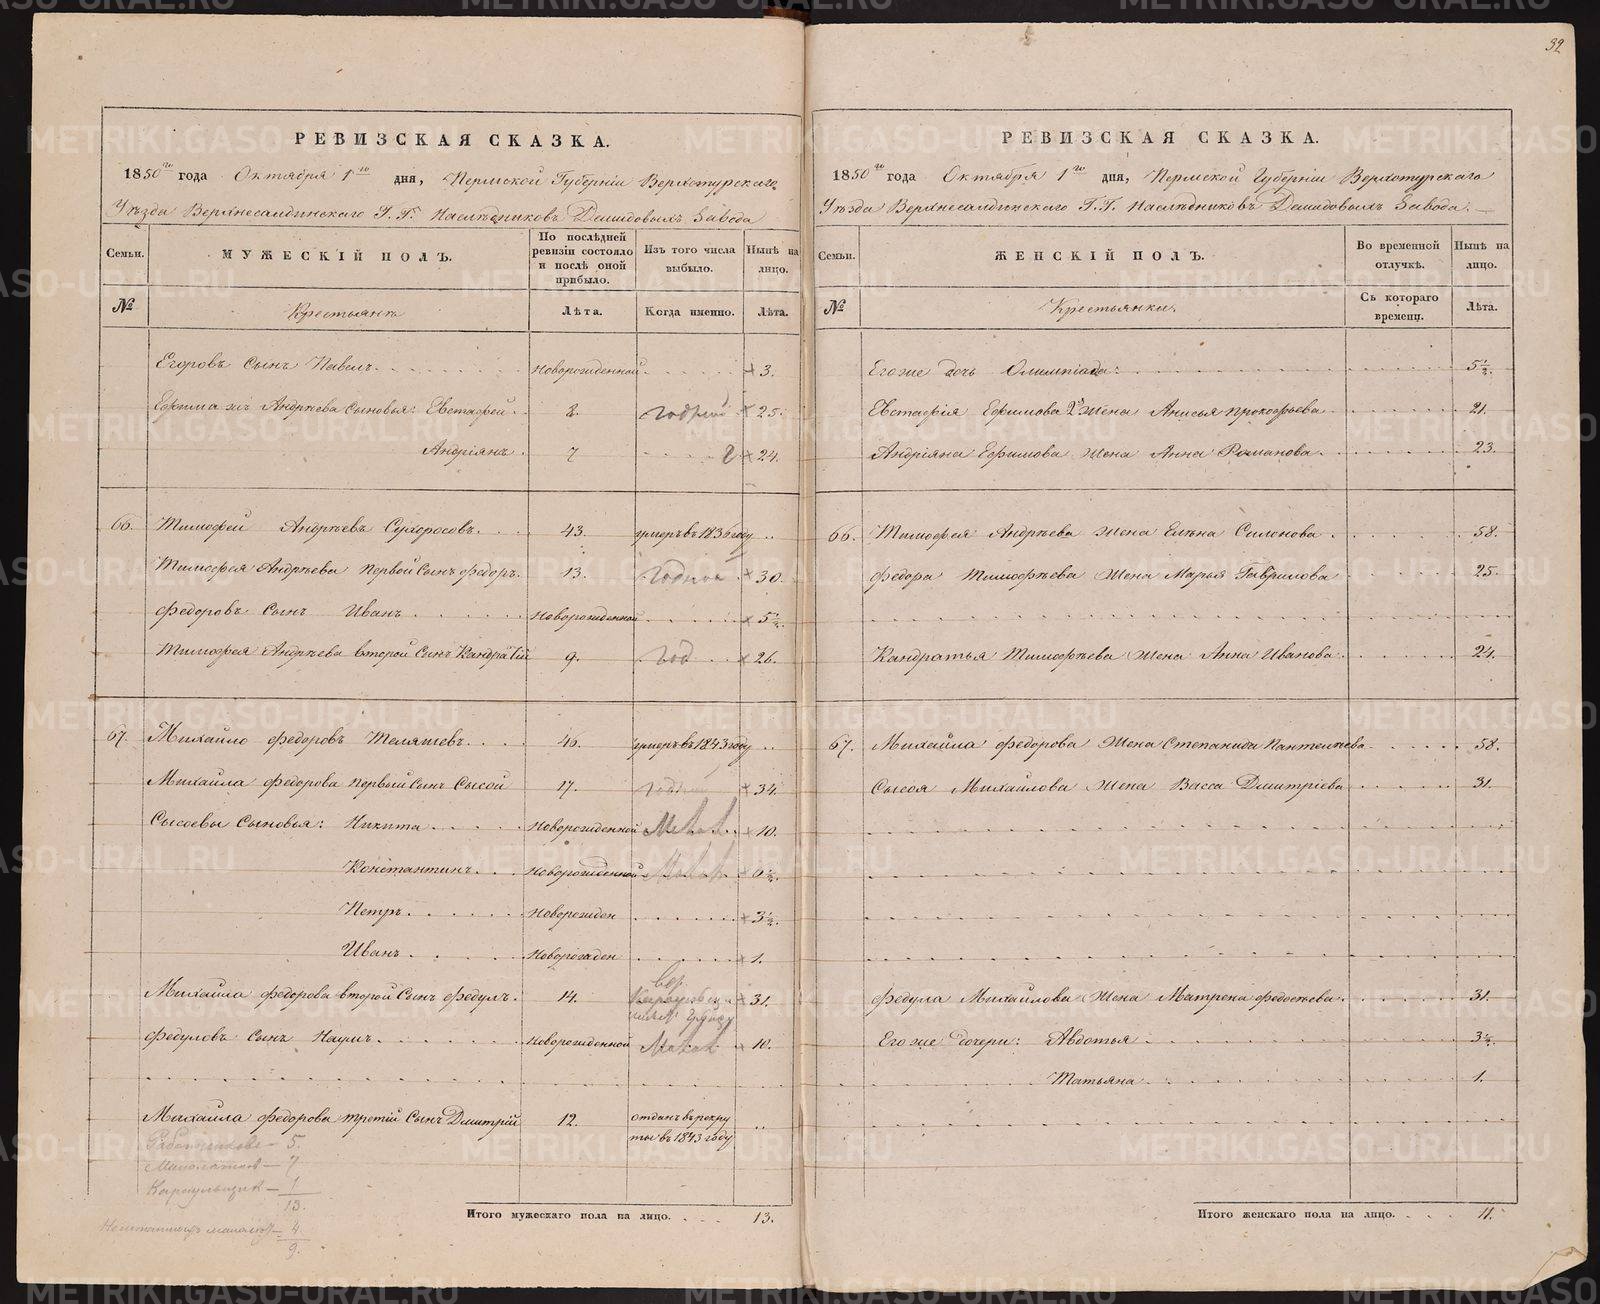 32
РЕВИЗСКАЯ СКАЗКА.
1850го года Октября 1го дня, Пермской Губерніи Верхотурскаго
Уѣзда Верхнесалдинскаго Г. Г. Наслѣдниковъ Демидовыхъ Завода
Семьи. МУЖЕСКІЙ ПОЛЪ. По послѣдней ревизіи состояло и послѣ оной прибыло. Изъ того числа выбыло. Нынѣ на лицо.
№ Крестьянъ Лѣта. Когда именно. Лѣта.
Егоровъ Сынъ Павелъ Новорожденной 3.
Ефима жъ Андрѣева Сыновья: Евстафей 2. годной 25.
Андріянъ 7 24.
66. Тимофей Андрѣевъ Сухоросовъ 43. умеръ въ 1836 году
Тимофея Андрѣева первой Сынъ Федоръ 13. годной 30.
Федоровъ Сынъ Иванъ Новорожденной 5½.
Тимофея Андрѣева второй Сынъ Кандратій 9. год 26.
67. Михайло Федоровъ Теляшевъ 46. умеръ въ 1843 году
Михайла Федорова первый Сынъ Сысой 17. годный 34.
Сысоевы Сыновья: Никита Новорожденной 10.
Константинъ Новорожденной 6½.
Петръ Новорожден 3½.
Иванъ Новорожден 1.
Михайла Федорова второй Сынъ Федулъ 14. 31.
Федуловъ Сынъ Наумъ Новорожденной 10.
Михайла Федорова третій Сынъ Дмитрій 12. отданъ въ рекру
ты въ 1843 году
5.
7
Караульщик — 1
13.
4
9.
Итого мужескаго пола на лицо. 13.
РЕВИЗСКАЯ СКАЗКА.
1850го года Октября 1го дня, Пермской Губерніи Верхотурскаго
Уѣзда Верхнесалдинскаго Г. Г. Наслѣдниковъ Демидовыхъ Завода.
Семьи. ЖЕНСКІЙ ПОЛЪ. Во временной отлучкѣ. Нынѣ на лицо.
№ Крестьянки. Съ котораго времени. Лѣта.
Его же дочь Олимпіада 5½.
Евстафія Ефимова 2я Жена Анисья Прокофьева 21.
Андріяна Ефимова жена Анна Романова 23.
66. Тимофея Андрѣева жена Елѣна Силонова 58.
Федора Тимофѣева Жена Марья Гаврилова 25.
Кандратья Тимофѣева Жена Анна Иванова 24.
67. Михайла Федорова Жена Степанида Пантелѣева 58.
Сысоя Михайлова Жена Васса Дмитріева 31.
Федула Михайлова Жена Матрена Федосѣева 31.
Его же дочери: Авдотья 3½.
Татьяна 1.
Итого женскаго пола на лицо. 11.
METRIKI.GASO-URAL.RU